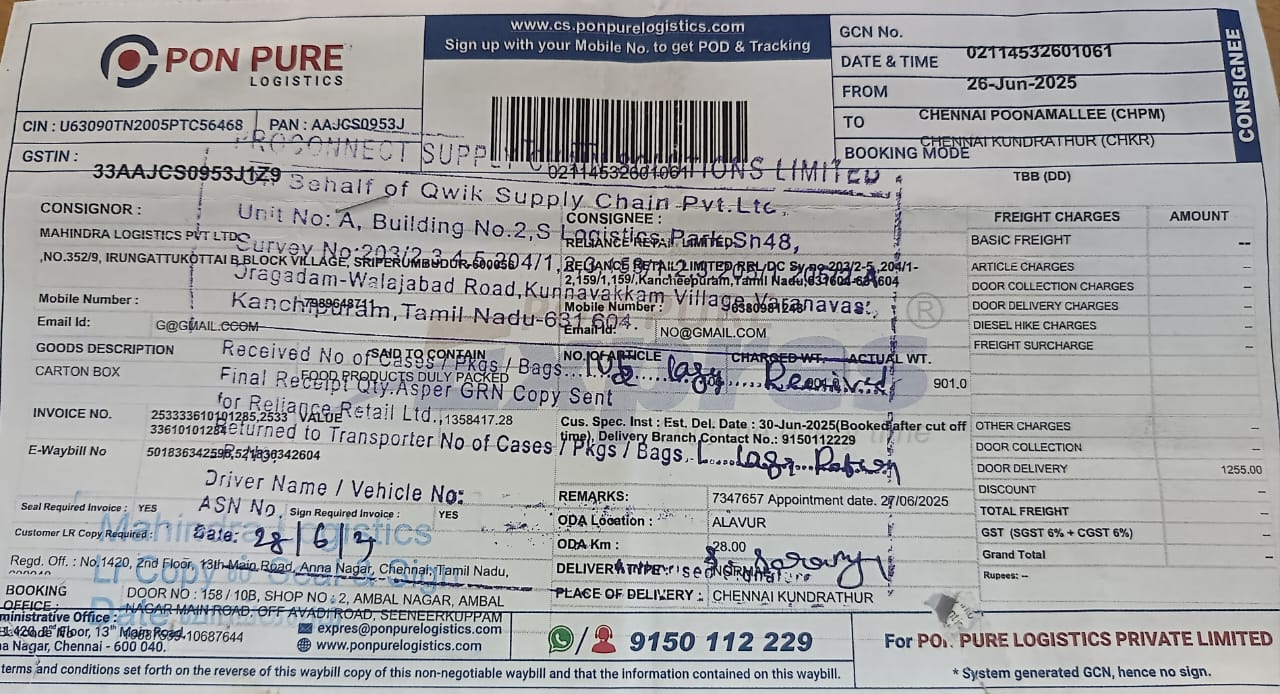 PON PURE
LOGISTICS
www.cs.ponpurelogistics.com
Sign up with your Mobile No. to get POD & Tracking
GCN No.
02114532601061
DATE & TIME
26-Jun-2025
FROM
CHENNAI POONAMALLEE (CHPM)
TO
CHENNAI KUNDRATHUR (CHKR)
BOOKING MODE
TBB (DD)
CONSIGNEE
CIN : U63090TN2005PTC56468
PAN : AAJCS0953J
GSTIN :
33AAJCS0953J1Z9
02114532601061
PROCONNECT SUPPLY SOLUTIONS LIMITED
On Behalf of Qwik Supply Chain Pvt.Ltd.
Unit No: A, Building No.2,S Logistics Park,Sh48,
Survey No:203/2,3,4,5, 204/1
Oragadam-Walajabad Road,Kunnavakkam Village,Varanavasi,
Kanchipuram,Tamil Nadu-631604.
CONSIGNOR :
MAHINDRA LOGISTICS PVT LTD
,NO.352/9, IRUNGATTUKOTTAI B BLOCK VILLAGE, SRIPERUMBUDUR
Mobile Number :
7989648711
Email Id:
G@GMAIL.CCOM
CONSIGNEE :
RELIANCE RETAIL LIMITED
RELIANCE RETAIL LIMITED RRL/DC Sy no 203/2-5 ,204/1-
2,159/1,159/,Kancheepuram,Tamil Nadu,631604
Mobile Number :
Email Id:
NO@GMAIL.COM
GOODS DESCRIPTION
SAID TO CONTAIN
NO. OF ARTICLE
CHARGED WT.
ACTUAL WT.
CARTON BOX
FOOD PRODUCTS DULY PACKED
901.0
Received No of Cases / Pkgs / Bags
105
Received
Final Receipt Qty.Asper GRN Copy Sent
for Reliance Retail Ltd.,
Returned to Transporter No of Cases / Pkgs / Bags
Driver Name / Vehicle No:
ASN No.
Date: 28/6/2
INVOICE NO.
253333610101285,2533
33610101284
VALUE
1358417.28
Cus. Spec. Inst : Est. Del. Date : 30-Jun-2025(Booked after cut off
time), Delivery Branch Contact No.: 9150112229
E-Waybill No
REMARKS:
7347657 Appointment date. 27/06/2025
ODA Location :
ALAVUR
ODA Km :
28.00
DELIVERY TYPE :
PLACE OF DELIVERY :
CHENNAI KUNDRATHUR
Seal Required Invoice :
YES
Sign Required Invoice :
YES
Customer LR Copy Required :
Mahindra Logistics
Regd. Off. : No.1420, 2nd Floor, 13th Main Road, Anna Nagar, Chennai, Tamil Nadu,
BOOKING
OFFICE :
DOOR NO : 158 / 10B, SHOP NO : 2, AMBAL NAGAR, AMBAL
NAGAR MAIN ROAD, OFF AVADI ROAD, SEENEERKUPPAM
FREIGHT CHARGES
AMOUNT
BASIC FREIGHT
--
ARTICLE CHARGES
–
DOOR COLLECTION CHARGES
–
DOOR DELIVERY CHARGES
–
DIESEL HIKE CHARGES
–
FREIGHT SURCHARGE
–
OTHER CHARGES
–
DOOR COLLECTION
–
DOOR DELIVERY
1255.00
DISCOUNT
–
TOTAL FREIGHT
–
GST (SGST 6% + CGST 6%)
–
Grand Total
–
Rupees: --
ministrative Office :
1420, 2nd Floor, 13th Main Road,
a Nagar, Chennai - 600 040.
expres@ponpurelogistics.com
www.ponpurelogistics.com
9150 112 229
For PON PURE LOGISTICS PRIVATE LIMITED
* System generated GCN, hence no sign.
terms and conditions set forth on the reverse of this waybill copy of this non-negotiable waybill and that the information contained on this waybill.